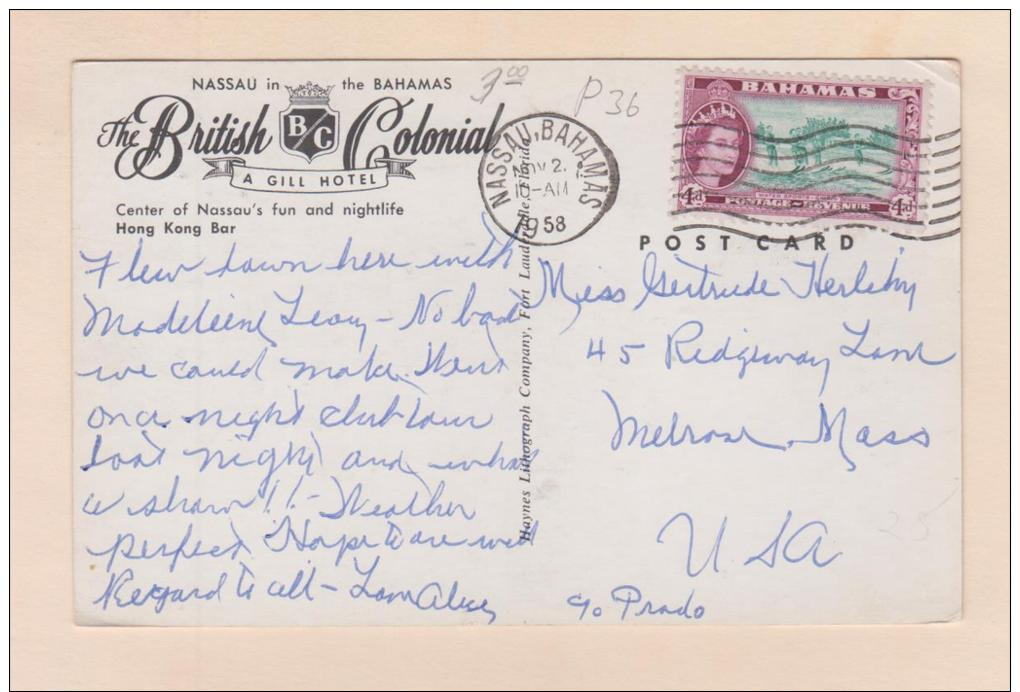 NASSAU in the BAHAMAS
The British Colonial
B/C
A GILL HOTEL
Center of Nassau's fun and nightlife
Hong Kong Bar
3.00
P 36
NASSAU, BAHAMAS
2.
10-AM
1958
BAHAMAS
4d POSTAGE REVENUE 4d
POST CARD
Flew down here with
Madeleine Leary - No bad
we could make. Went
on a night club tour
last night and what
a show!! - Weather
perfect Hope to are well
Regard to all - Love Alice
Haynes Lithograph Company, Fort Lauderdale, Florida
Miss Gertrude Herlihy
45 Ridgeway Lane
Melrose Mass
25
USA
c/o Prado